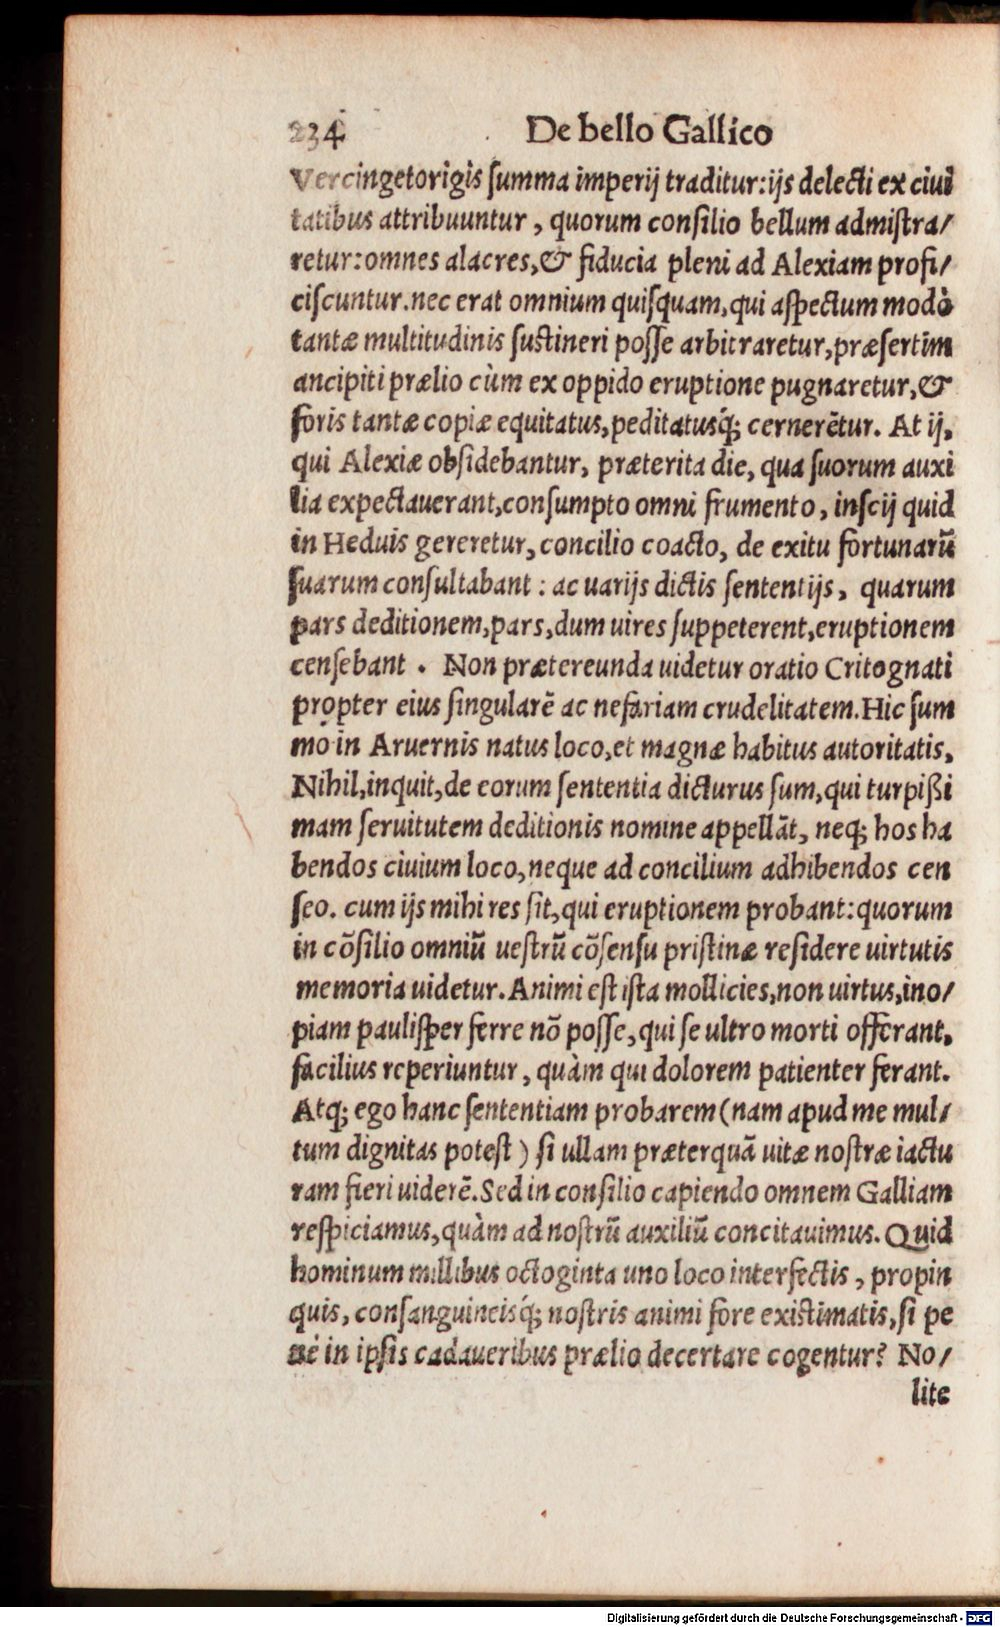 234 De bello Gallico
Vercingetorigis ſumma imperij traditur:ijs delecti ex ciui
tatibus attribuuntur, quorum conſilio bellum admiſtra/
retur:omnes alacres,& fiducia pleni ad Alexiam profi/
ciſcuntur.nec erat omnium quiſquam,qui aſpectum modò
tantæ multitudinis ſuſtineri poſſe arbitraretur,præſertim
ancipiti prælio cùm ex oppido eruptione pugnaretur,&
foris tantæ copiæ equitatus,peditatusq́; cernerētur. At ij,
qui Alexiæ obſidebantur, præterita die, qua ſuorum auxi
lia expectauerant,conſumpto omni frumento, inſcij quid
in Heduis gereretur, concilio coacto, de exitu fortunarū
ſuarum conſultabant: ac uarijs dictis ſententijs, quarum
pars deditionem,pars,dum uires ſuppeterent,eruptionem
cenſebant. Non prætereunda uidetur oratio Critognati
propter eius ſingularē ac nefariam crudelitatem.Hic ſum
mo in Aruernis natus loco,et magnæ habitus autoritatis,
Nihil,inquit,de eorum ſententia dicturus ſum,qui turpißi
mam ſeruitutem deditionis nomine appellāt, neq; hos ha
bendos ciuium loco,neque ad concilium adhibendos cen
ſeo. cum ijs mihi res ſit,qui eruptionem probant:quorum
in cōſilio omniū ueſtrū cōſenſu priſtinæ reſidere uirtutis
memoria uidetur.Animi eſt iſta mollicies,non uirtus,ino/
piam pauliſper ferre nō poſſe,qui ſe ultro morti offerant,
facilius reperiuntur, quàm qui dolorem patienter ferant.
Atq; ego hanc ſententiam probarem(nam apud me mul/
tum dignitas poteſt) ſi ullam præterquā uitæ noſtræ iactu
ram fieri uiderē.Sed in conſilio capiendo omnem Galliam
reſpiciamus,quàm ad noſtrū auxiliū concitauimus. Quid
hominum millibus octoginta uno loco interfectis, propin
quis, conſanguineisq́; noſtris animi fore exiſtimatis,ſi pe
nè in ipſis cadaueribus prælio decertare cogentur? No/
lite
Digitalisierung gefördert durch die Deutsche Forschungsgemeinschaft - DFG